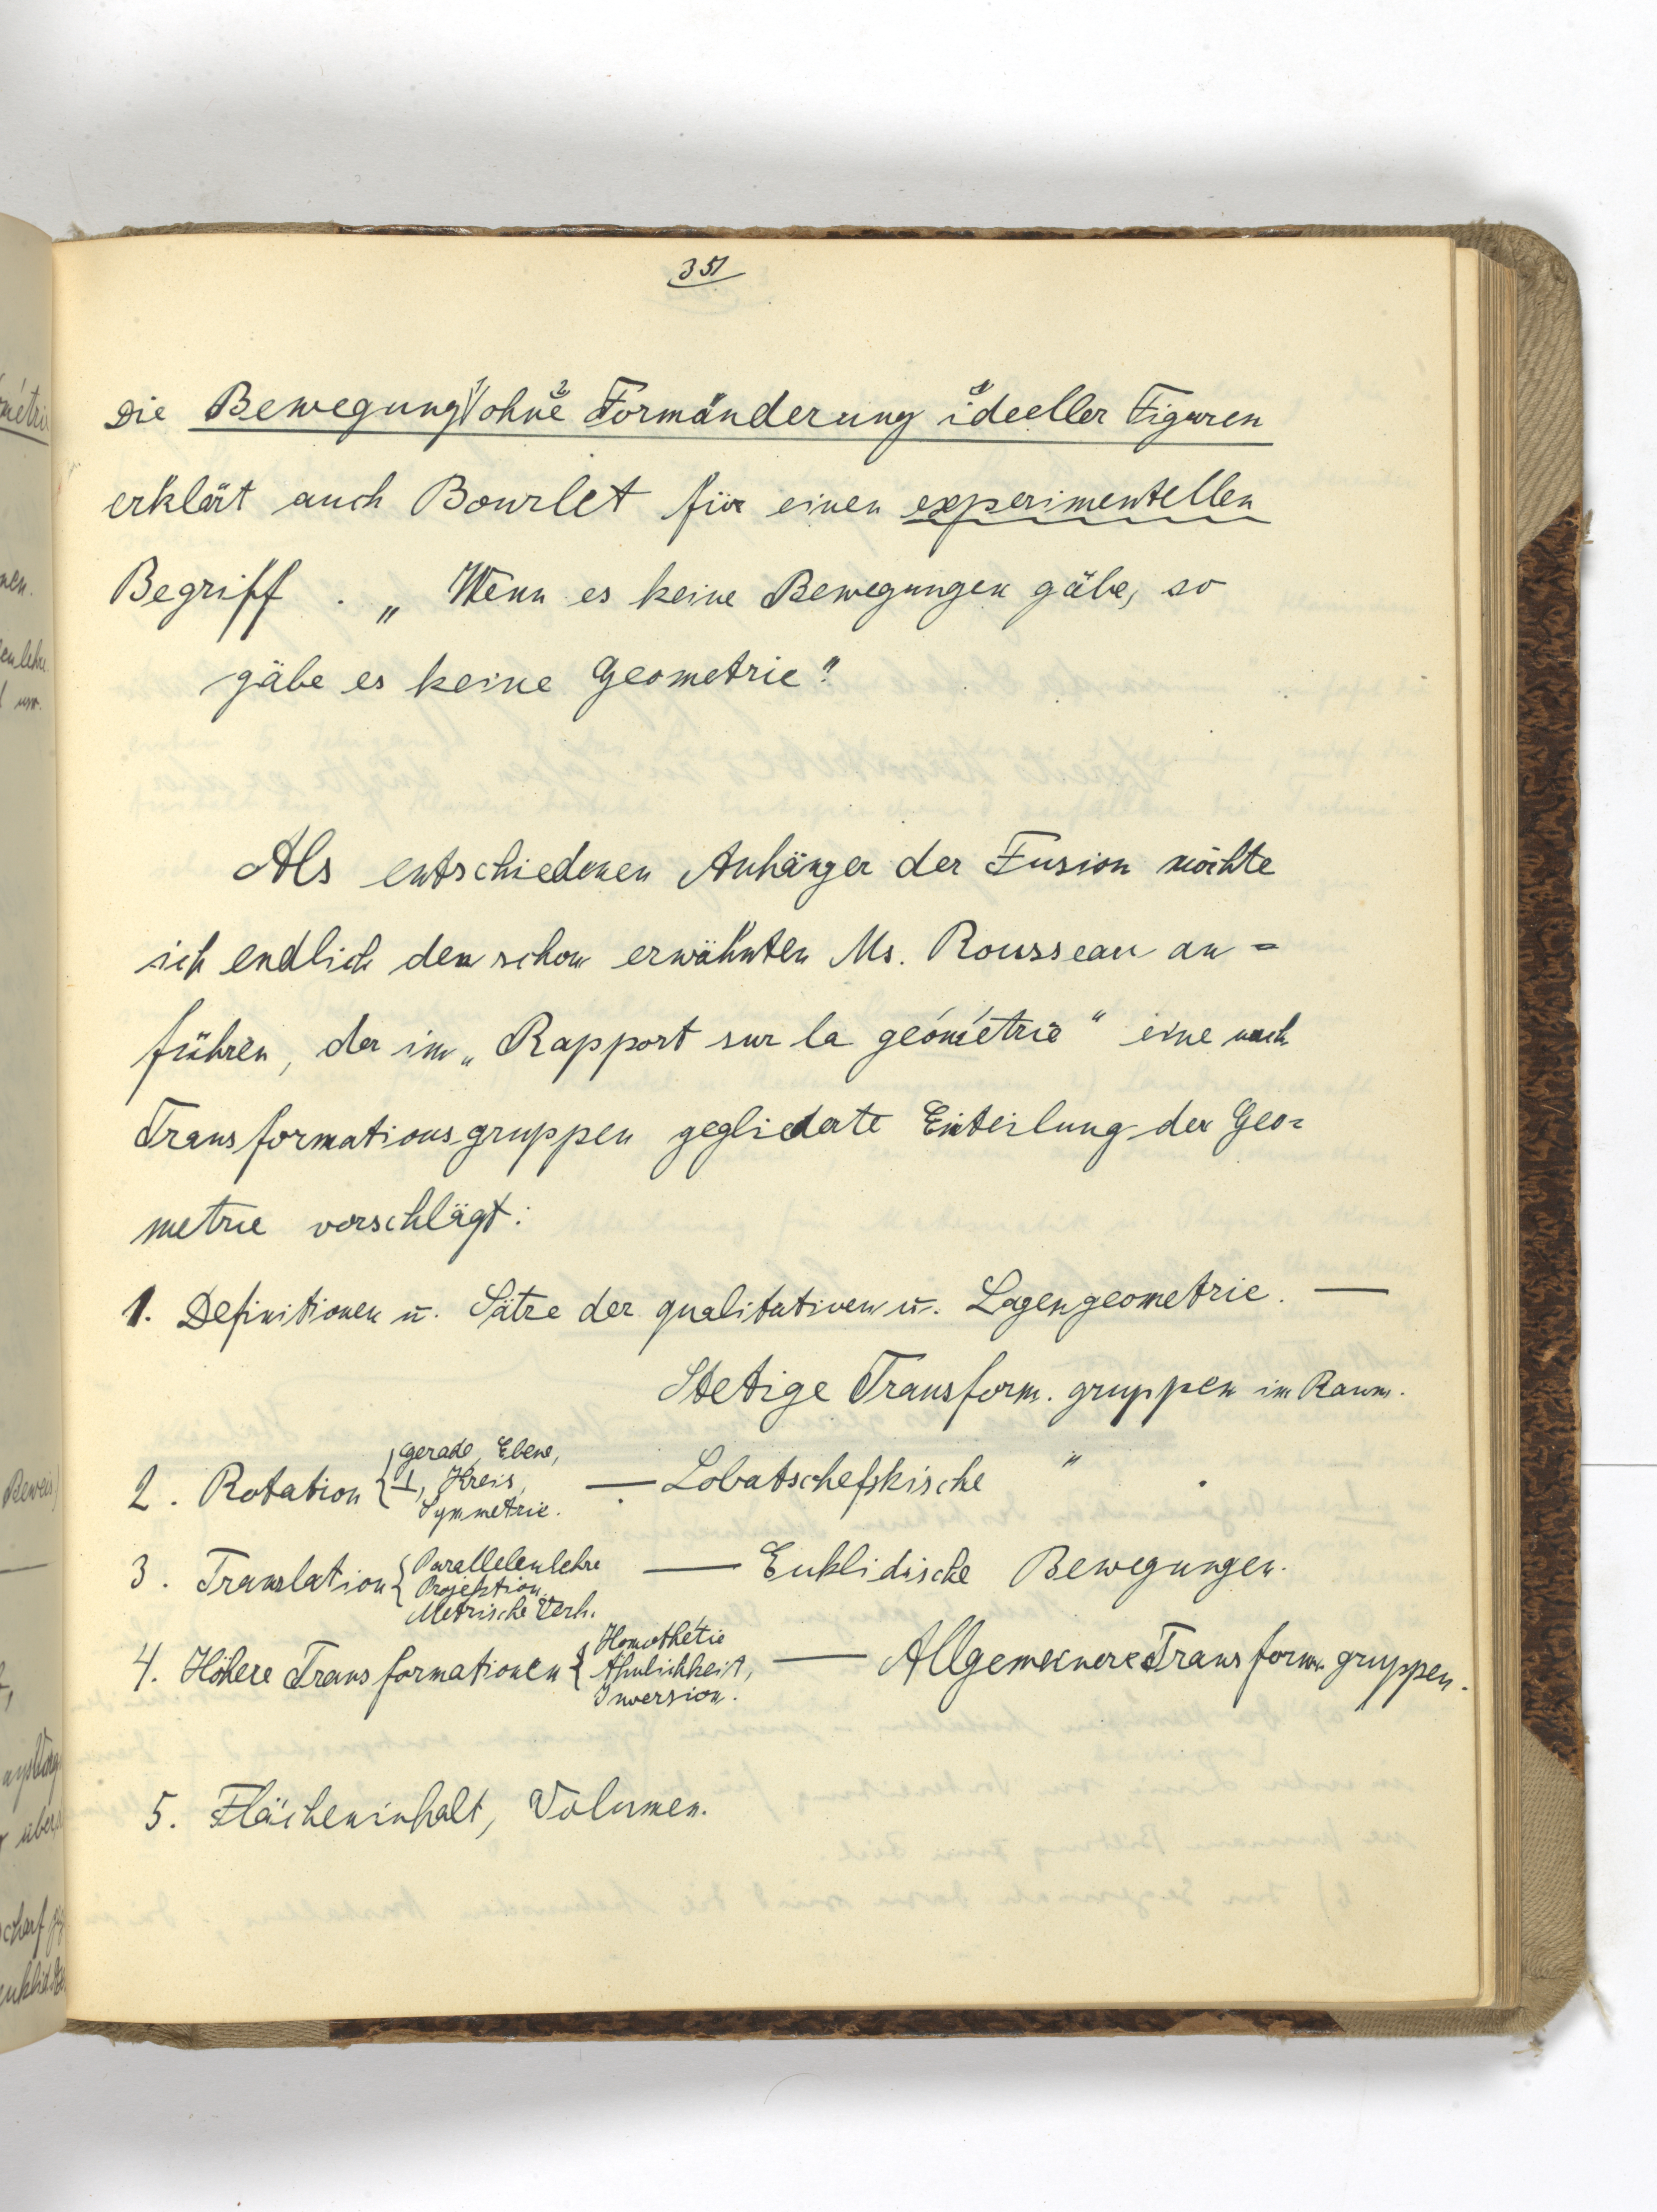 351
Die Bewegung ohne Formänderung ideeller Figuren
erklärt auch Bourlet für einen experimentellen
Begriff. „Wenn es keine Bewegungen gäbe, so
gäbe es keine Geometrie"
Als entschiedenen Anhänger der Fusion möchte
ich endlich den schon erwähnten Ms. Rousseau an=
führen, der im „Rapport sur la géométrie" eine nach
Transformationsgruppen gegliederte Einteilung der Geo=
metrie vorschlägt:
1. Definitionen u. Sätze der qualitativen u. Lagengeometrie. —
Stetige Transform. gruppen im Raum.
gerade, Ebene,
2. Rotation { ⊥, Kreis, — Lobatschefskische "
Symmetrie.
3. Translation { Parallelenlehre — Euklidische Bewegungen.
Projektion
Metrische Verh.
Homothétie
4. Höhere Transformationen { Ähnlichkeit, — Allgemeinere Transform. gruppen.
Inversion.
5. Flächeninhalt, Volumen.